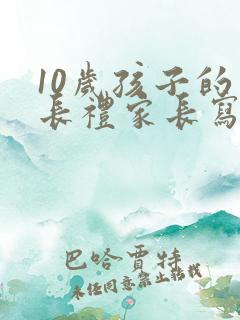 10歲孩子的
長禮家長寫
巴哈賈特
未任同意禁止轉載